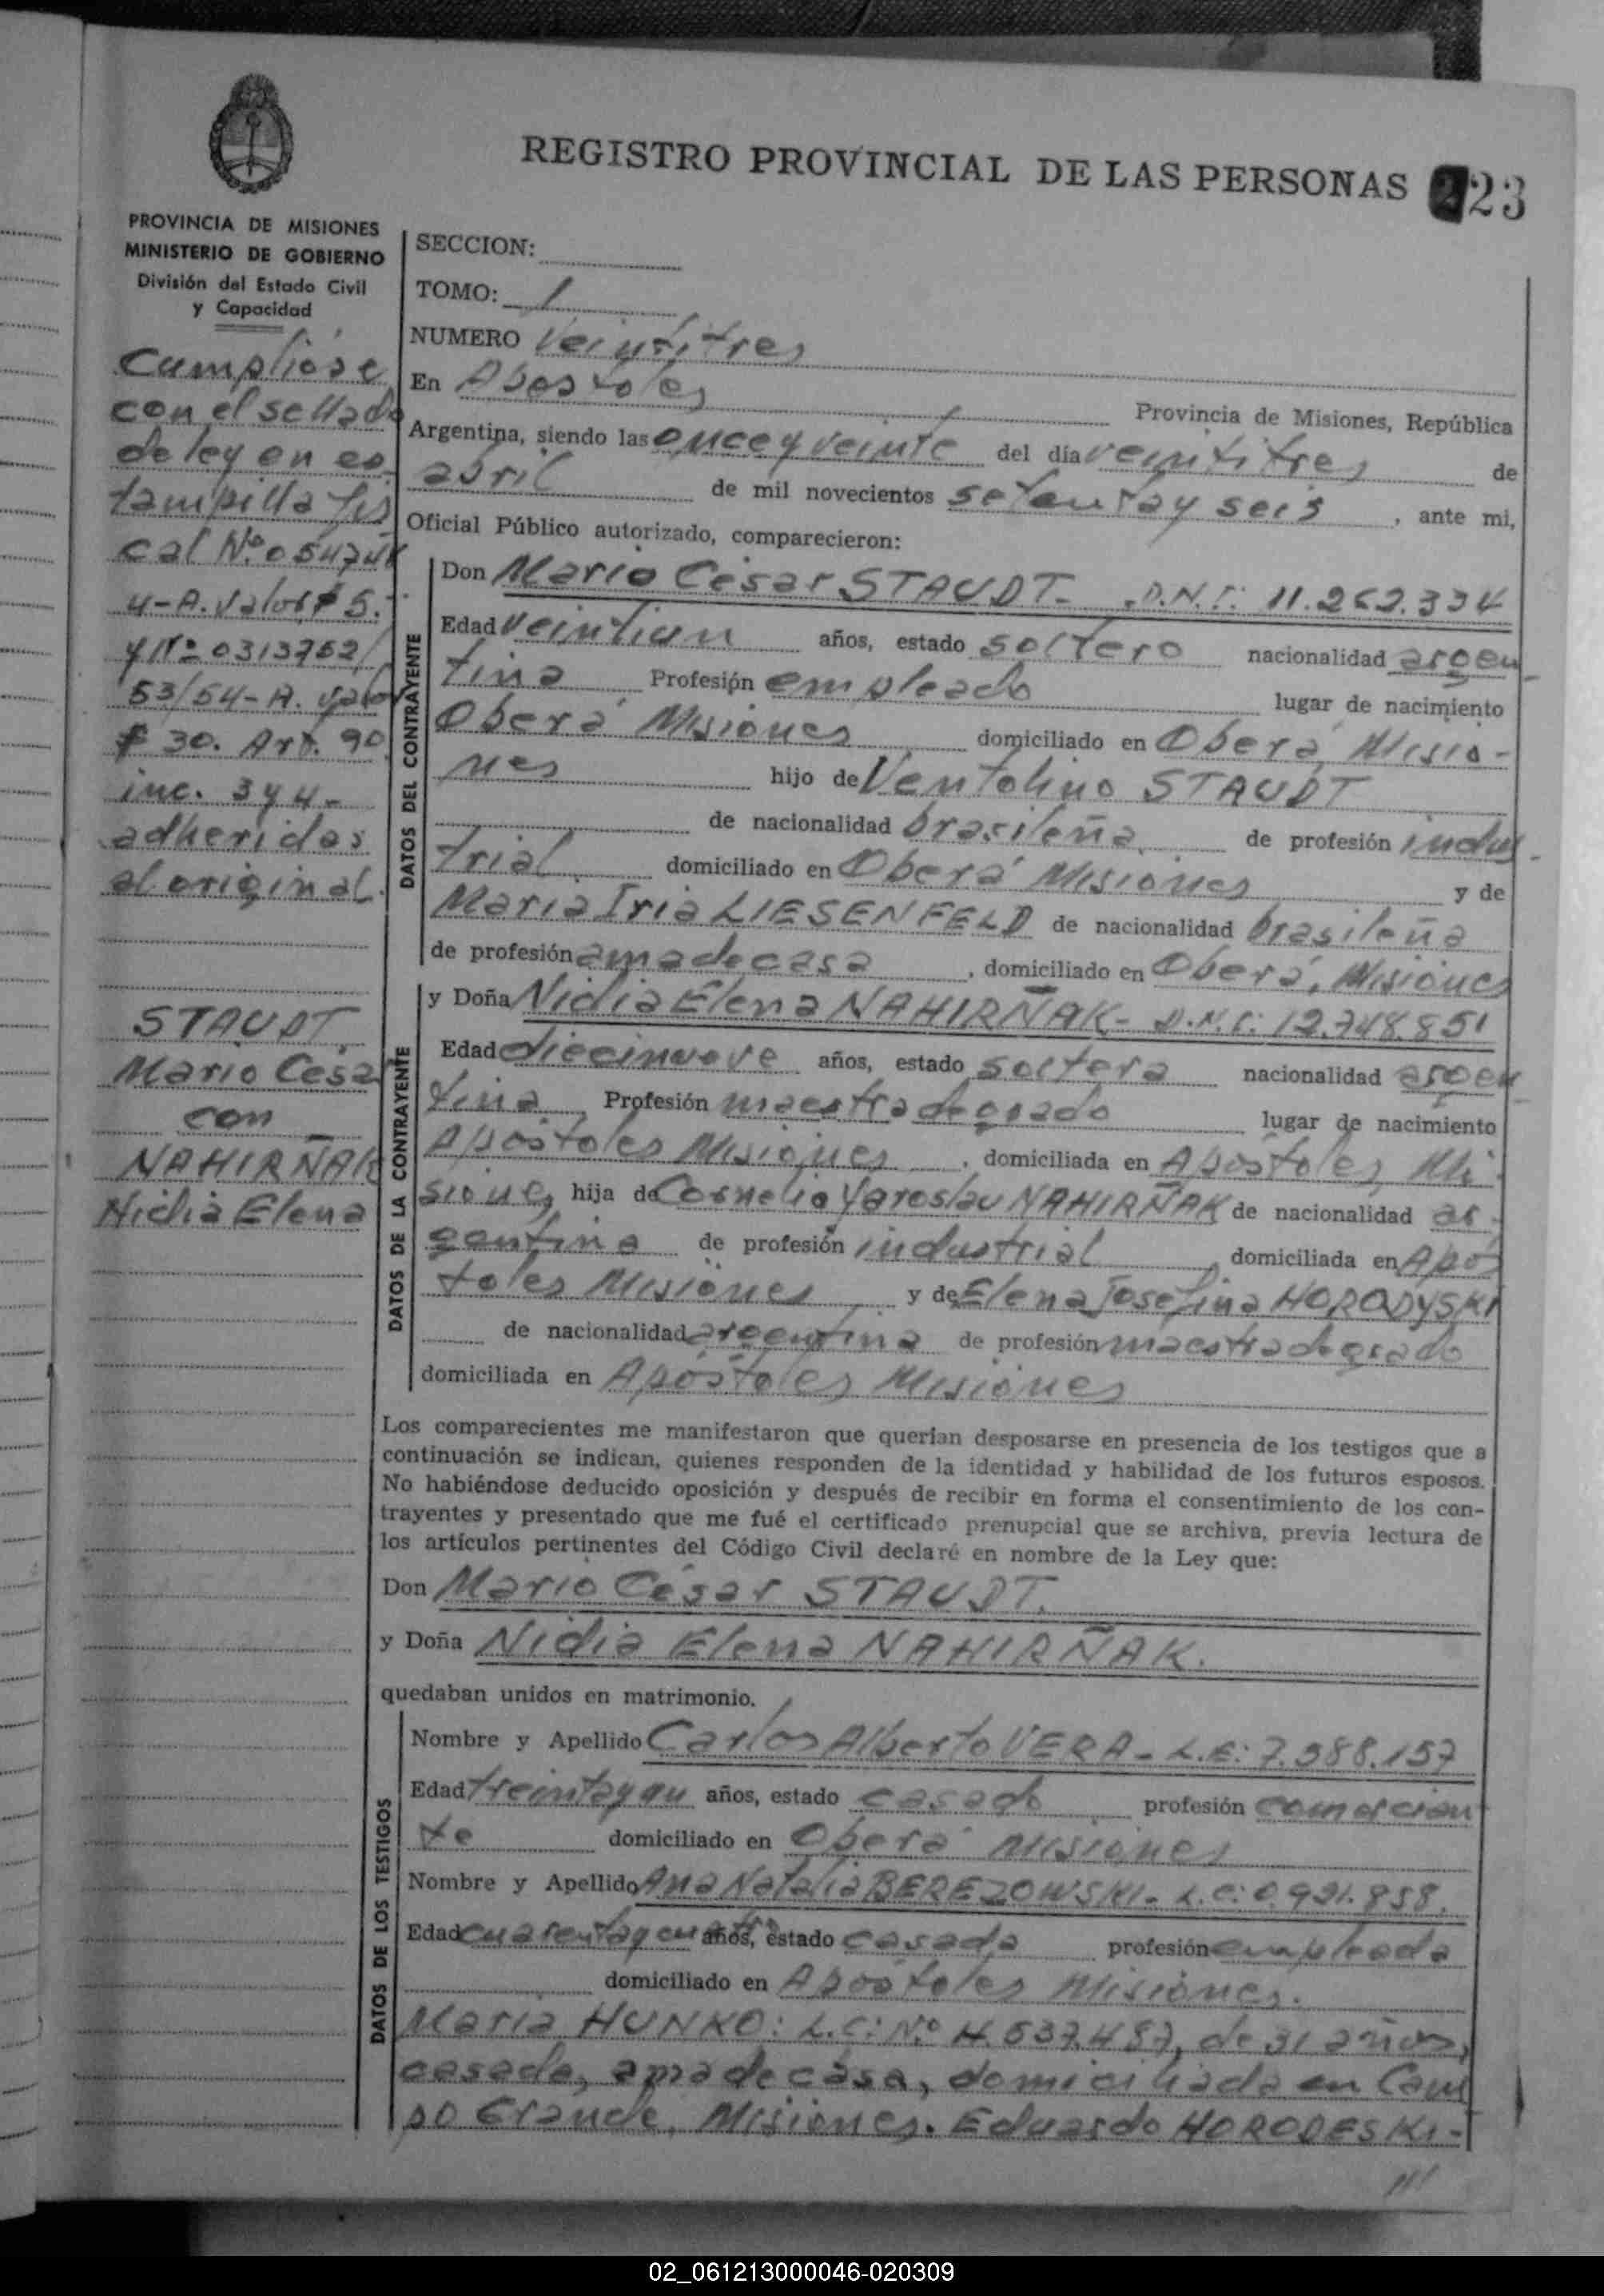 REGISTRO PROVINCIAL DE LAS PERSONAS 223
PROVINCIA DE MISIONES
MINISTERIO DE GOBIERNO
División del Estado Civil
y Capacidad
Cumplióse
con el sellado
de ley en es
tampilla fis
cal Nº 054746
4-A. Valor $ 5.-
y Nº 0313752/
53/54-A. valor
$ 30. Art. 90
inc. 3 y 4-
adheridas
al original.
STAUDT
Mario Césa
con
NAHIRÑAK
Nidia Elena
SECCION:
TOMO: 1
NUMERO Veintitres
En Apostoles Provincia de Misiones, República
Argentina, siendo las once y veinte del día veintitres de
abril de mil novecientos setenta y seis, ante mi,
Oficial Público autorizado, comparecieron:
DATOS DEL CONTRAYENTE
Don Mario César STAUDT- D.N.I: 11.262.334
Edad veintiun años, estado soltero nacionalidad argen
tina Profesión empleado lugar de nacimiento
Oberá Misiones domiciliado en Oberá, Misio-
nes hijo de Ventolino STAUDT
de nacionalidad brasileña de profesión indus-
trial domiciliado en Oberá Misiones y de
Maria Iria LIESENFELD de nacionalidad brasileña
de profesión ama de casa, domiciliado en Oberá, Misiones
DATOS DE LA CONTRAYENTE
y Doña Nidia Elena NAHIRÑAK- D.N.I: 12.748.851
Edad diecinueve años, estado soltera nacionalidad argen-
tina Profesión maestra de grado lugar de nacimiento
Apóstoles Misiones, domiciliada en Apóstoles, Mi-
siones, hija de Cornelio Yaroslav NAHIRÑAK de nacionalidad ar-
gentina de profesión industrial, domiciliada en Após
toles Misiones y de Elena Josefina HORODYSKI
de nacionalidad argentina de profesión maestra de grado
domiciliada en Apóstoles Misiones
Los comparecientes me manifestaron que querían desposarse en presencia de los testigos que a
continuación se indican, quienes responden de la identidad y habilidad de los futuros esposos.
No habiéndose deducido oposición y después de recibir en forma el consentimiento de los con-
trayentes y presentado que me fué el certificado prenupcial que se archiva, previa lectura de
los artículos pertinentes del Código Civil declaré en nombre de la Ley que:
Don Mario César STAUDT.
y Doña Nidia Elena NAHIRÑAK.
quedaban unidos en matrimonio.
DATOS DE LOS TESTIGOS
Nombre y Apellido Carlos Alberto VERA- L.E: 7.588.157
Edad treinta y un años, estado casado profesión comercian
te domiciliado en Oberá Misiones
Nombre y Apellido Ana Natalia BEREZOWSKI- L.C: 0.991.858.
Edad cuarenta y cuatro años, estado casada profesión empleada
domiciliado en Apóstoles Misiones.
Maria HUNKO: L.C: Nº 4.637.487, de 31 años,
casada, ama de casa, domiciliada en Cam
po Grande, Misiones. Eduardo HORODESKI-
///
02_061213000046-020309